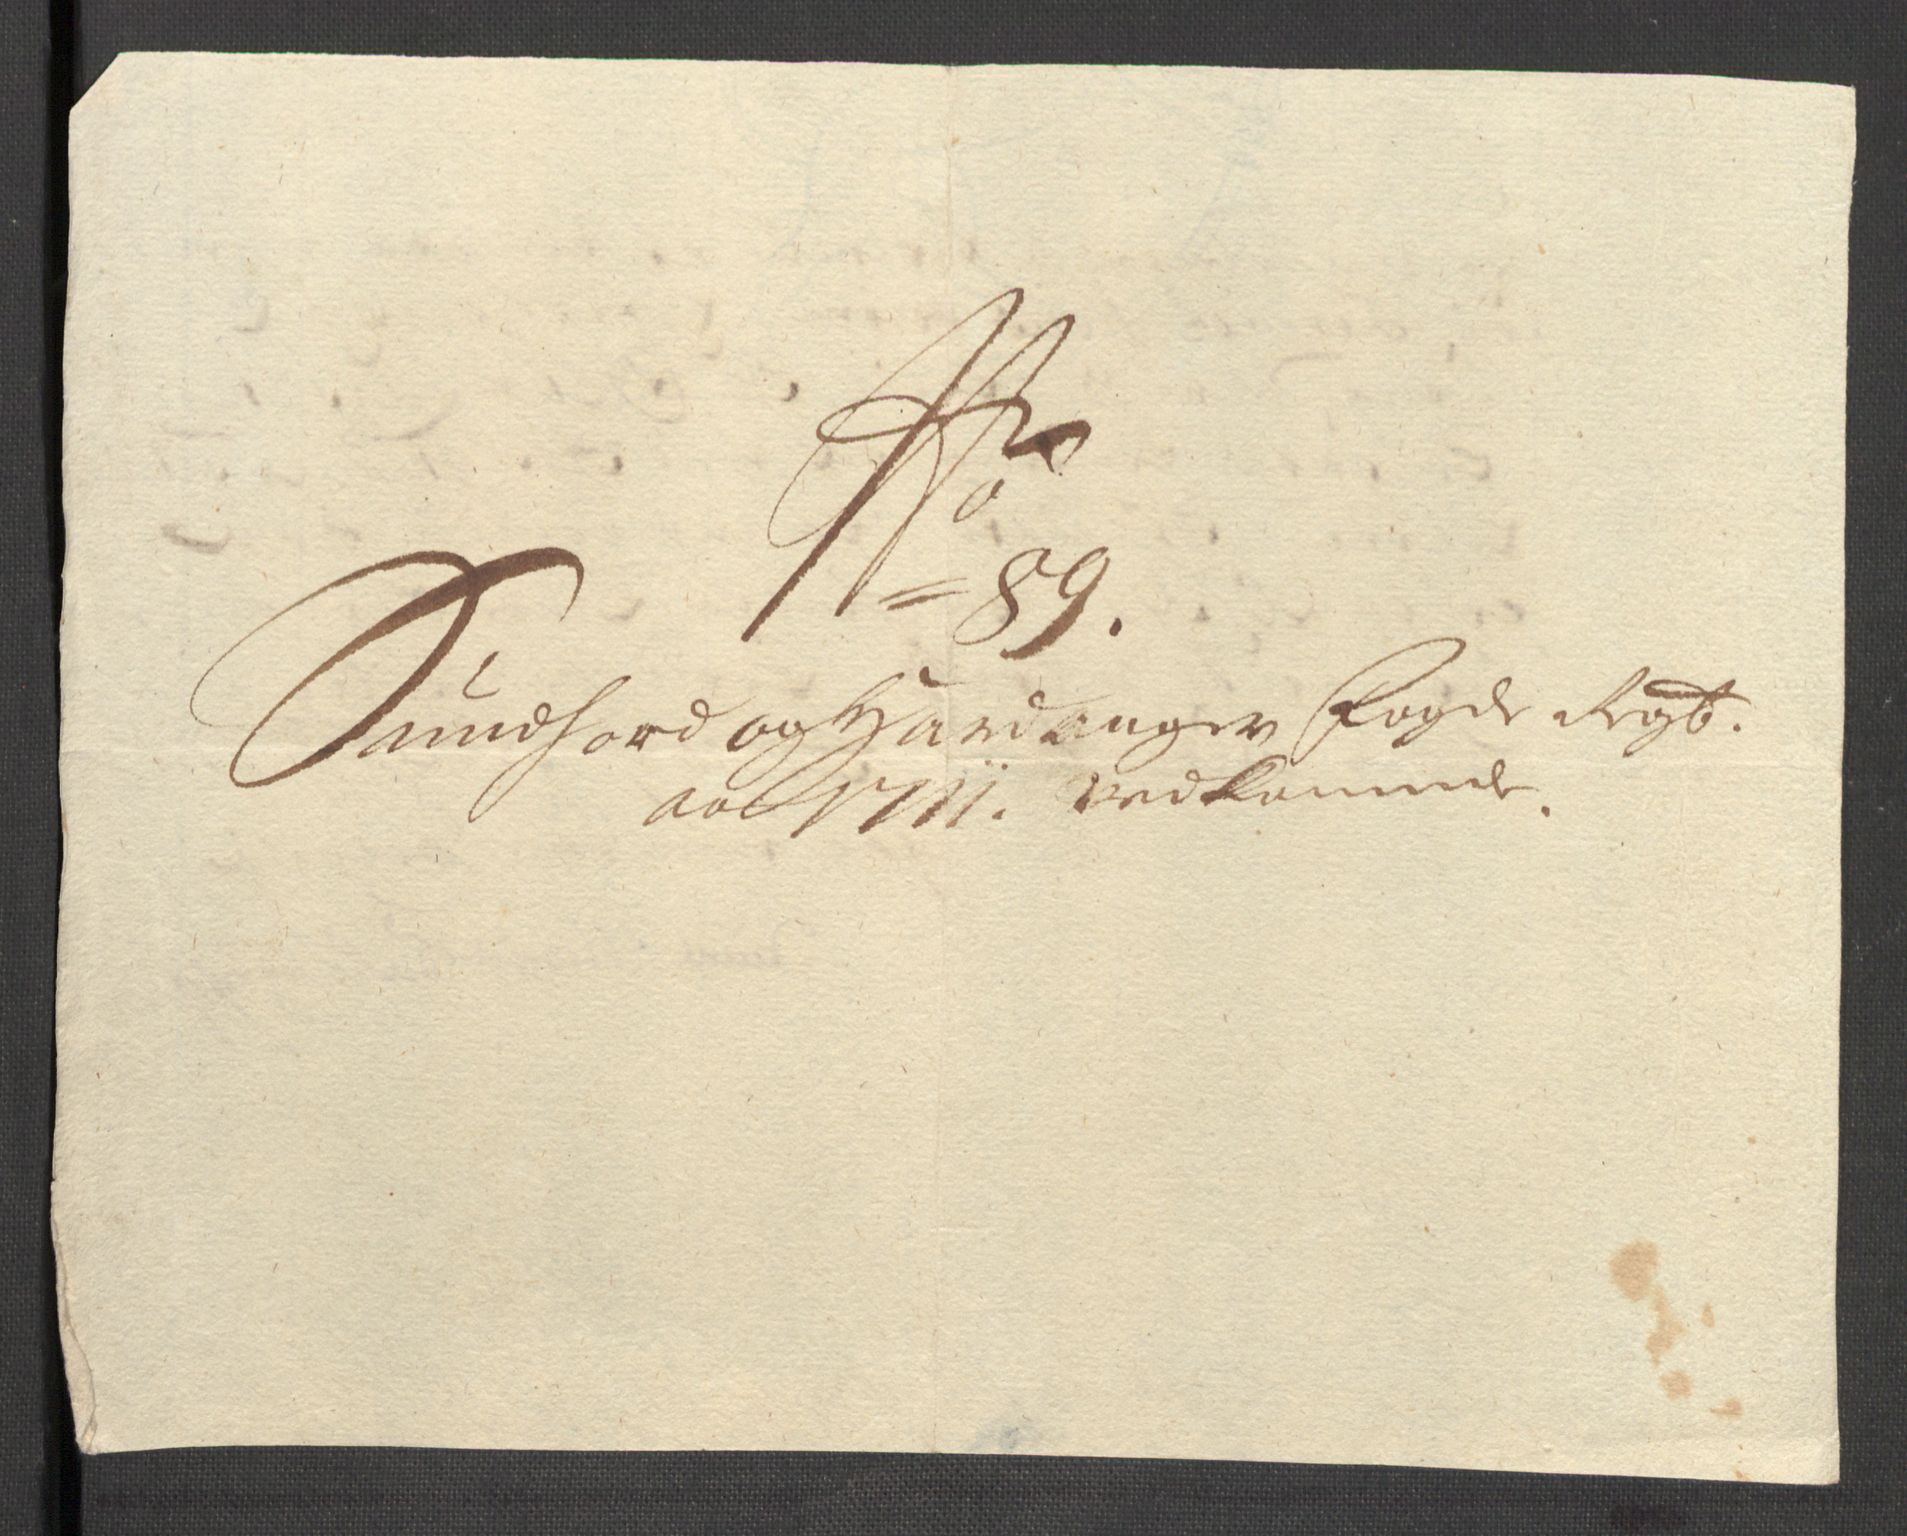 No
=89.
Sundhord og Hardanger Fogde Regb.
ao 1711. vedkomende.